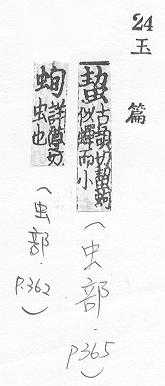 24
玉篇
古頡切
似蟬而小
(虫部.
P365)
詳遵切
虫也
(虫部.
P.362)